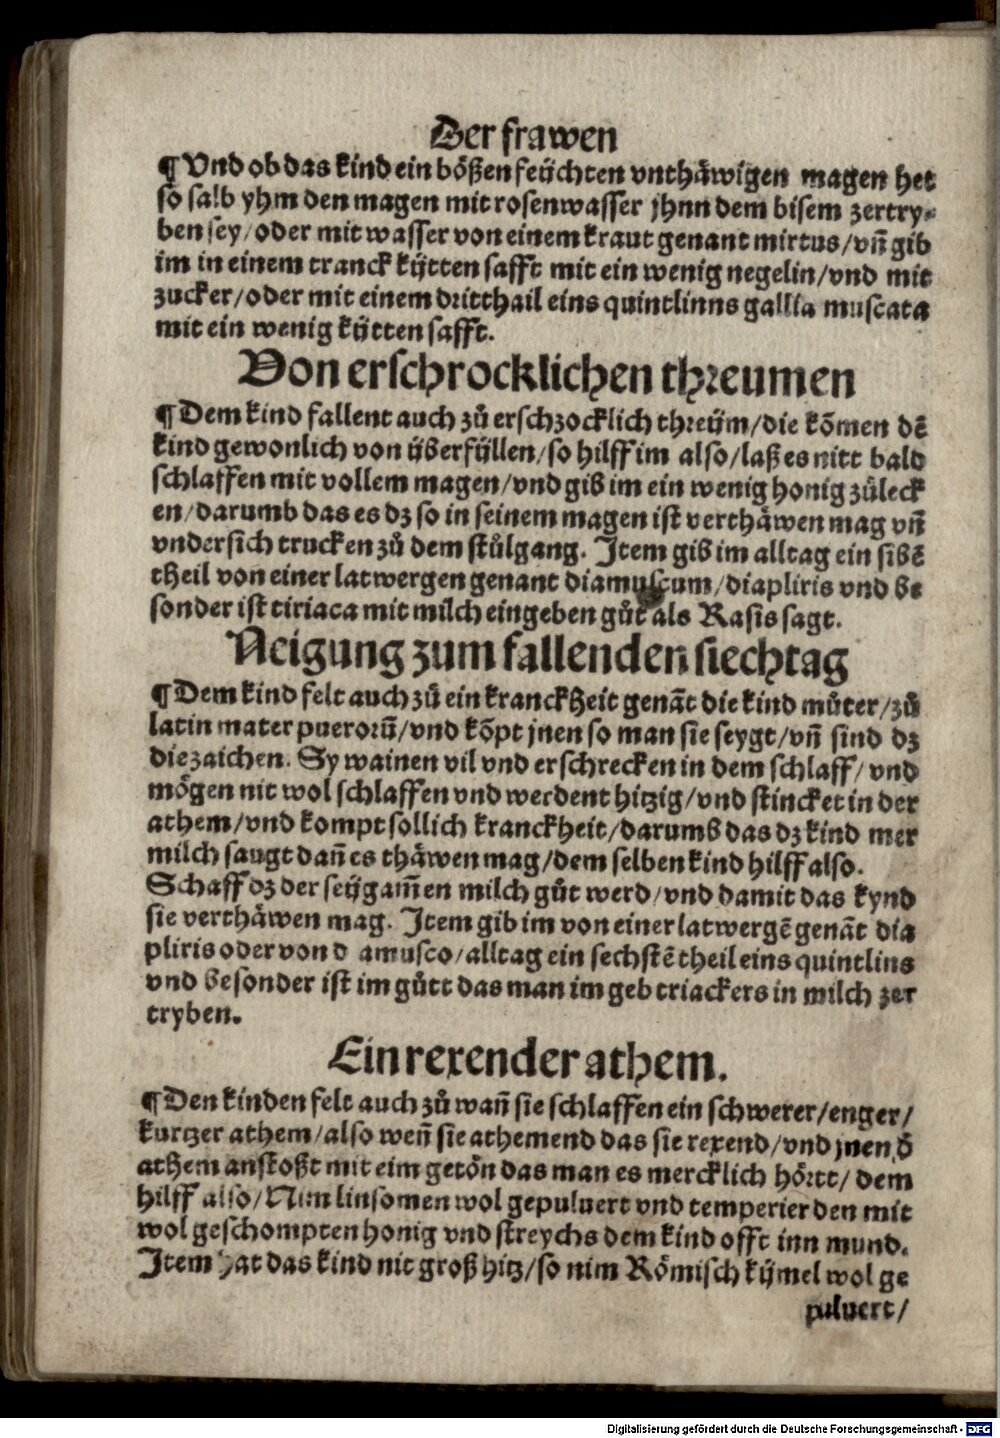 Der frawen
¶ Vnd ob das kind ein bößen feüchten vnthåwigen magen het
so salb yhm den magen mit rosenwasser jhnn dem bisem zertry⸗
ben sey/oder mit wasser von einem kraut genant mirtus/vñ gib
im in einem tranck kütten safft mit ein wenig negelin/vnd mit
zucker/oder mit einem dritthail eins quintlinns gallia muscata
mit ein wenig kütten safft.
Von erschrocklichen threumen
¶ Dem kind fallent auch zů erschrocklich threüm/die kõmen dẽ
kind gewonlich von überfüllen/so hilff im also/laß es nitt bald
schlaffen mit vollem magen/vnd gib im ein wenig honig zůleck
en/darumb das es dz so in seinem magen ist verthåwen mag vñ
vndersich trucken zů dem stůlgang. Item gib im alltag ein sibẽ
theil von einer latwergen genant diamuscum/diapliris vnd be
sonder ist tiriaca mit milch eingeben gůt als Rasis sagt.
Neigung zum fallenden siechtag
¶ Dem kind felt auch zů ein kranckheit genãt die kind můter/zů
latin mater puerorũ/vnd kõpt jnen so man sie seygt/vñ sind dz
die zaichen. Sy wainen vil vnd erschrecken in dem schlaff/vnd
mögen nit wol schlaffen vnd werdent hitzig/vnd stincket in der
athem/vnd kompt sollich kranckheit/darumb das dz kind mer
milch saugt dañ es thåwen mag/dem selben kind hilff also.
Schaff dz der seügam̃en milch gůt werd/vnd damit das kynd
sie verthåwen mag. Item gib im von einer latwergẽ genãt dia
pliris oder von d amusco/alltag ein sechstẽ theil eins quintlins
vnd besonder ist im gůtt das man im geb triackers in milch zer
tryben.
Ein rexender athem.
¶ Den kinden felt auch zů wañ sie schlaffen ein schwerer/enger/
kurtzer athem/also weñ sie athemend das sie rexend/vnd jnen õ
athem anstoßt mit eim getön das man es mercklich hörtt/dem
hilff also/Nim linsomen wol gepuluert vnd temperier den mit
wol geschompten honig vnd streychs dem kind offt inn mund.
Item hat das kind nit groß hitz/so nim Römisch kümel wol ge
puluert/
Digitalisierung gefördert durch die Deutsche Forschungsgemeinschaft - DFG